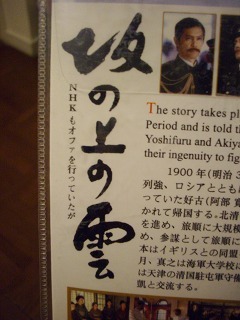 坂の上の雲
NHKもオファを行っていたが
The story takes pl
Period and is told th
Yoshifuru and Akiya
their ingenuity to fig
1900年(明治3
列強、ロシアととも
っていた好古(阿部寛
かれて帰国する。北清
を進め、旅順に大規模
め、参謀として旅順に
本はイギリスとの同盟
月、真之は海軍大学校
は天津の清国駐屯軍守備
凱と交流する。